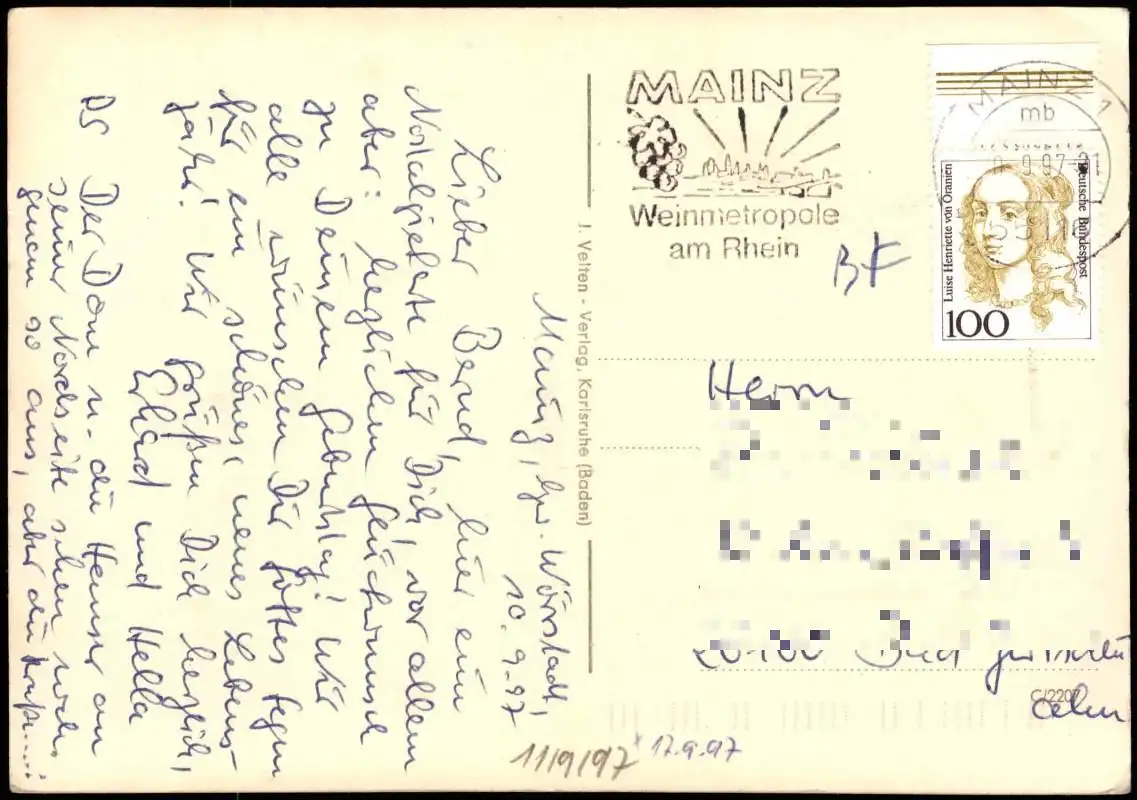 Mainz, bzw. Wörrstadt,
10.9.97
Lieber Bernd, hier eine
Nostalgiekarte für Dich, vor allem
aber: herzlichen Glückwunsch
zu Deinem Geburtstag! Wir
alle wünschen Dir Gottes Segen
für ein schönes, neues Lebens-
jahr! Wir grüßen Dich herzlich,
Erhard und Hella
PS Der Dom u. die Häuser an
seiner Nordseite sehen noch
genau so aus, aber die
J. Velten - Verlag, Karlsruhe (Baden)
MAINZ
Weinmetropole
am Rhein
BF
MAINZ 1
mb
9.97-21
55116
Deutsche Bundespost
Luise Henriette von Oranien
100
Herrn
C/2207
11/9/97
12.9.97